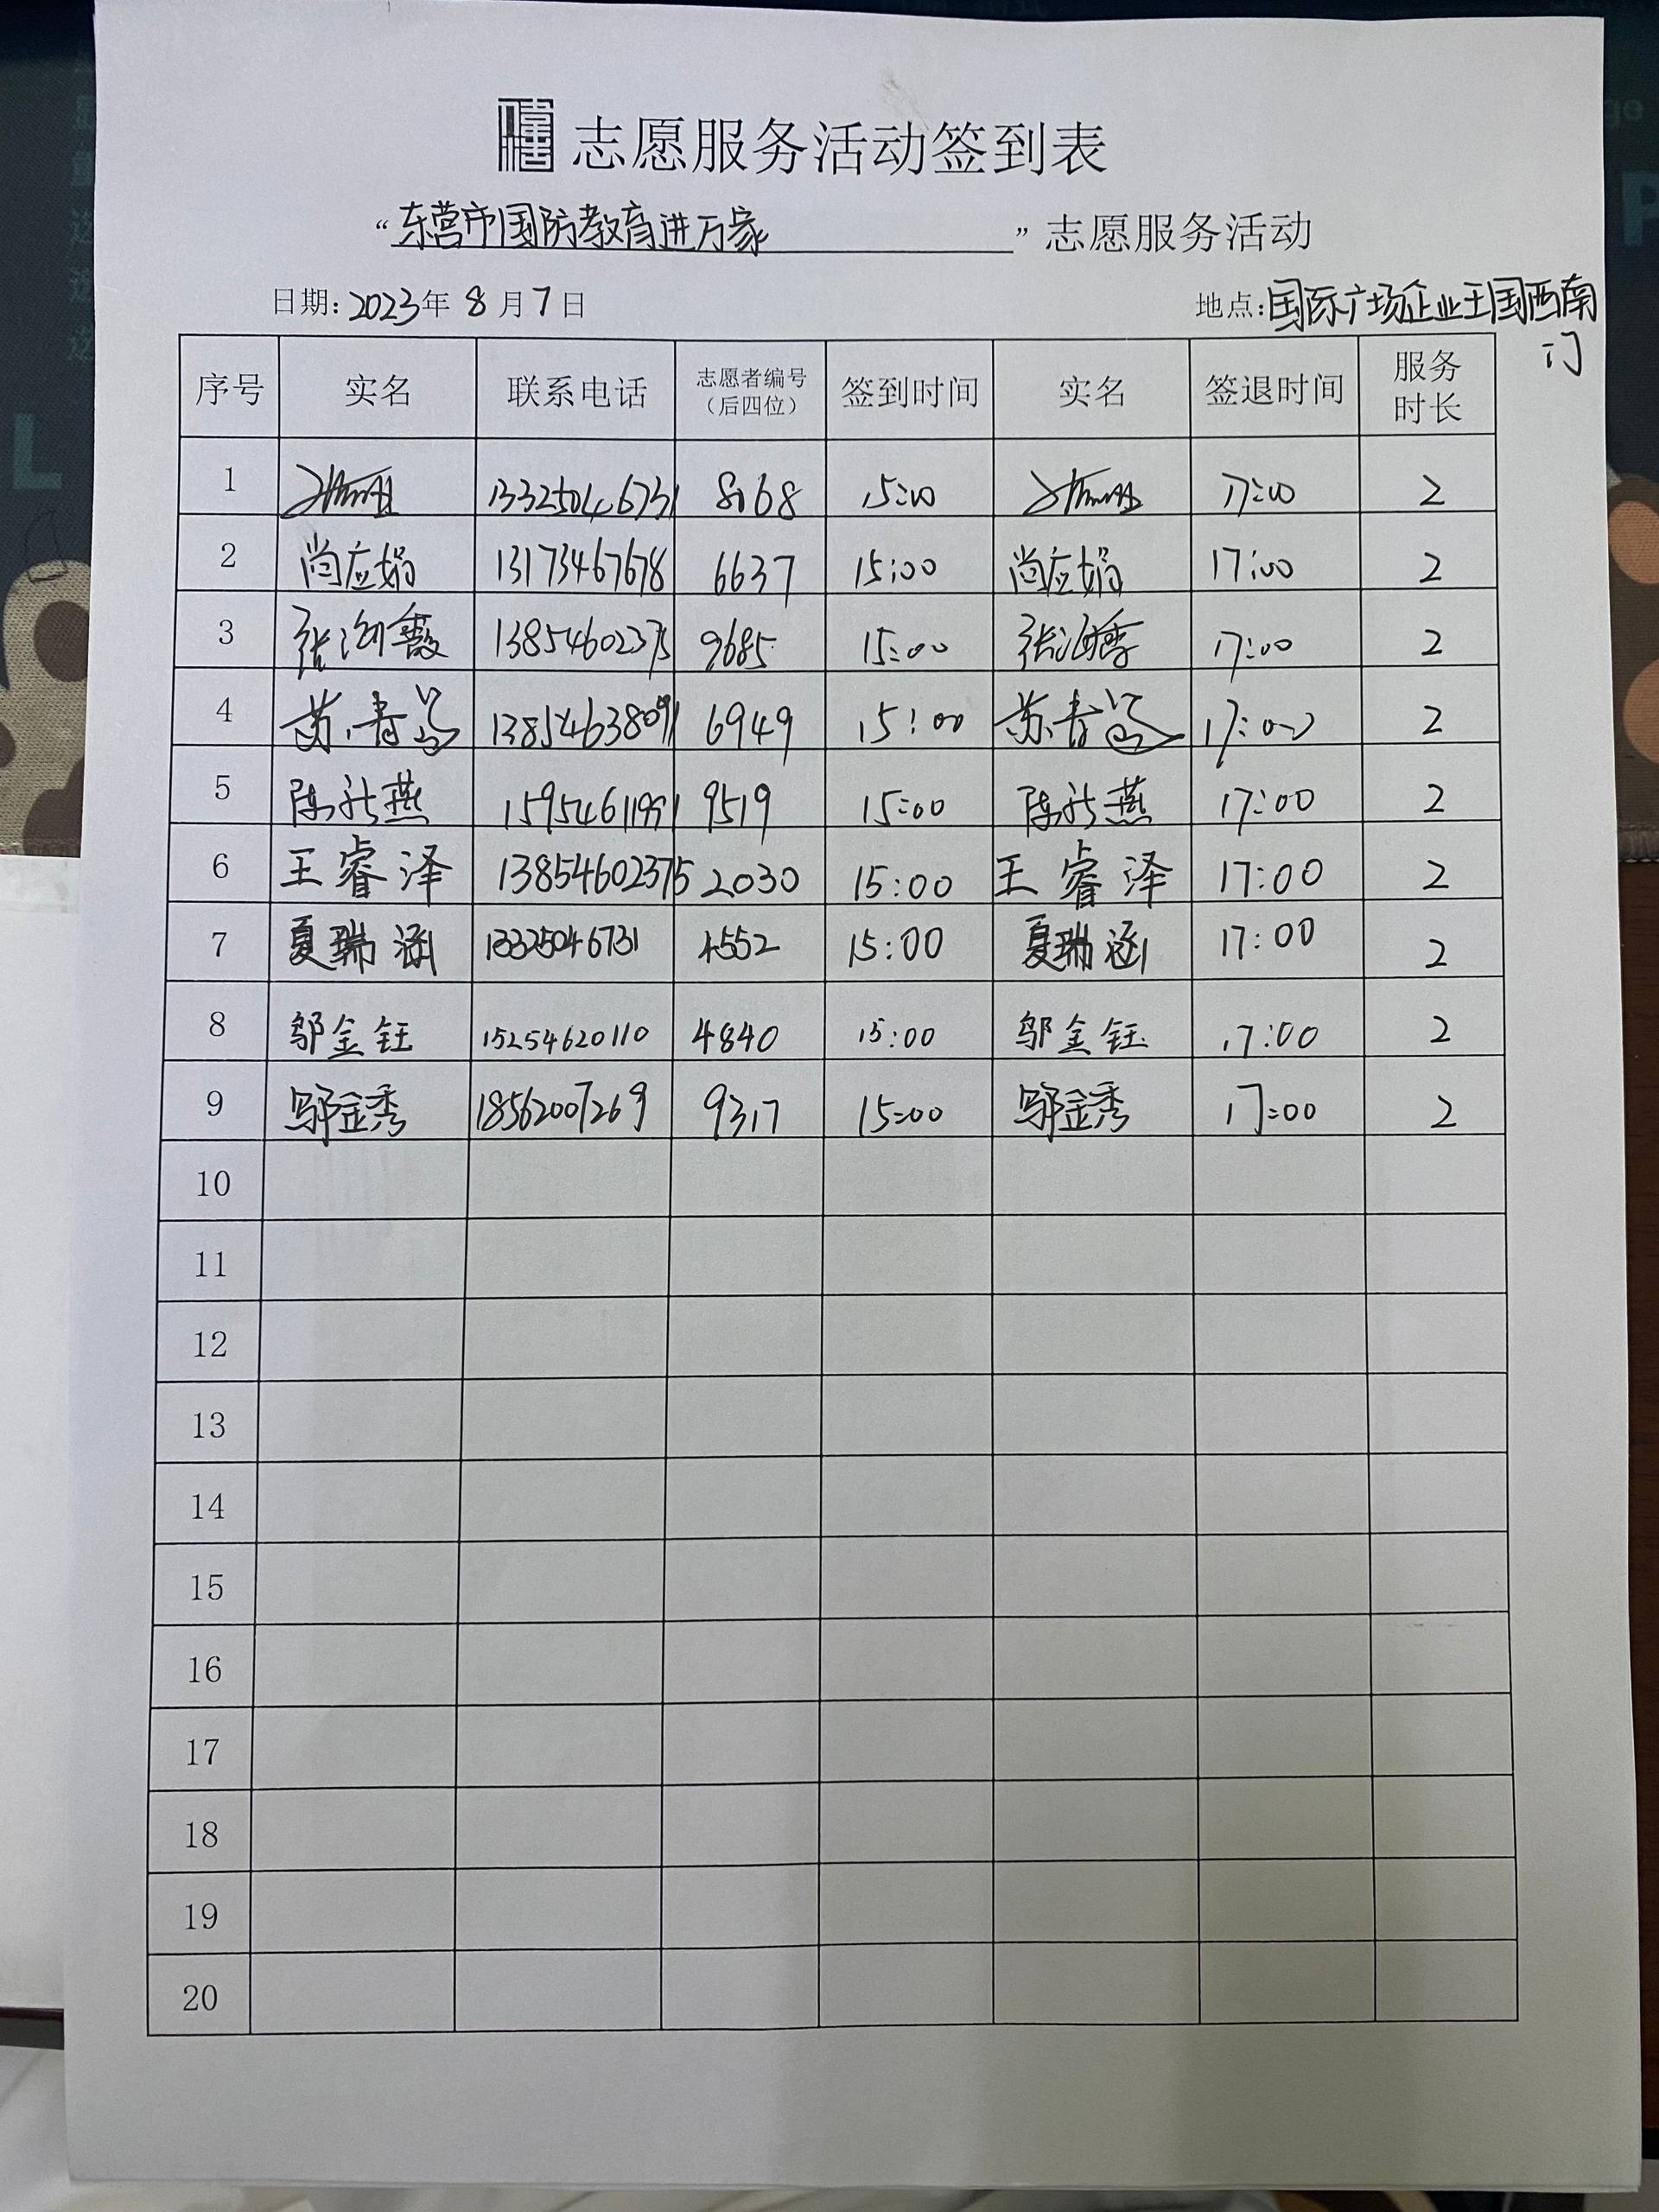 志愿服务活动签到表
“东营市国防教育进万家”志愿服务活动
日期: 2023年 8 月 7 日 地点: 国际广场企业王国西南
门
序号 实名 联系电话 志愿者编号（后四位） 签到时间 实名 签退时间 服务时长
1 13325046731 8168 15:00 17:00 2
2 尚应娟 13173467678 6637 15:00 尚应娟 17:00 2
3 张海霞 13854602375 9685 15:00 张海霞 17:00 2
4 苏青 13854638091 6949 15:00 苏青 17:00 2
5 陈 燕 15954611991 9519 15:00 陈 燕 17:00 2
6 王睿泽 13854602375 2030 15:00 王睿泽 17:00 2
7 夏瑞涵 13325046731 4552 15:00 夏瑞涵 17:00 2
8 邬金钰 15254620110 4840 15:00 邬金钰 17:00 2
9 邬金秀 18562007269 9317 15:00 邬金秀 17:00 2
10
11
12
13
14
15
16
17
18
19
20
L